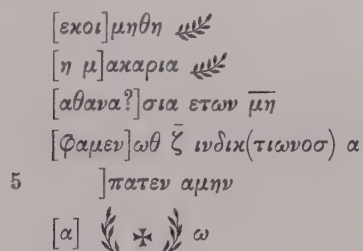 [εκοι]μηθη
[η μ]ακαρια
[αθανα?]σια ετων μ̅η̅
[Φαμεν]ωθ ζ̅ ινδικ(τιωνοσ) α
5 ]πατεν αμην
[α] ✠ ω